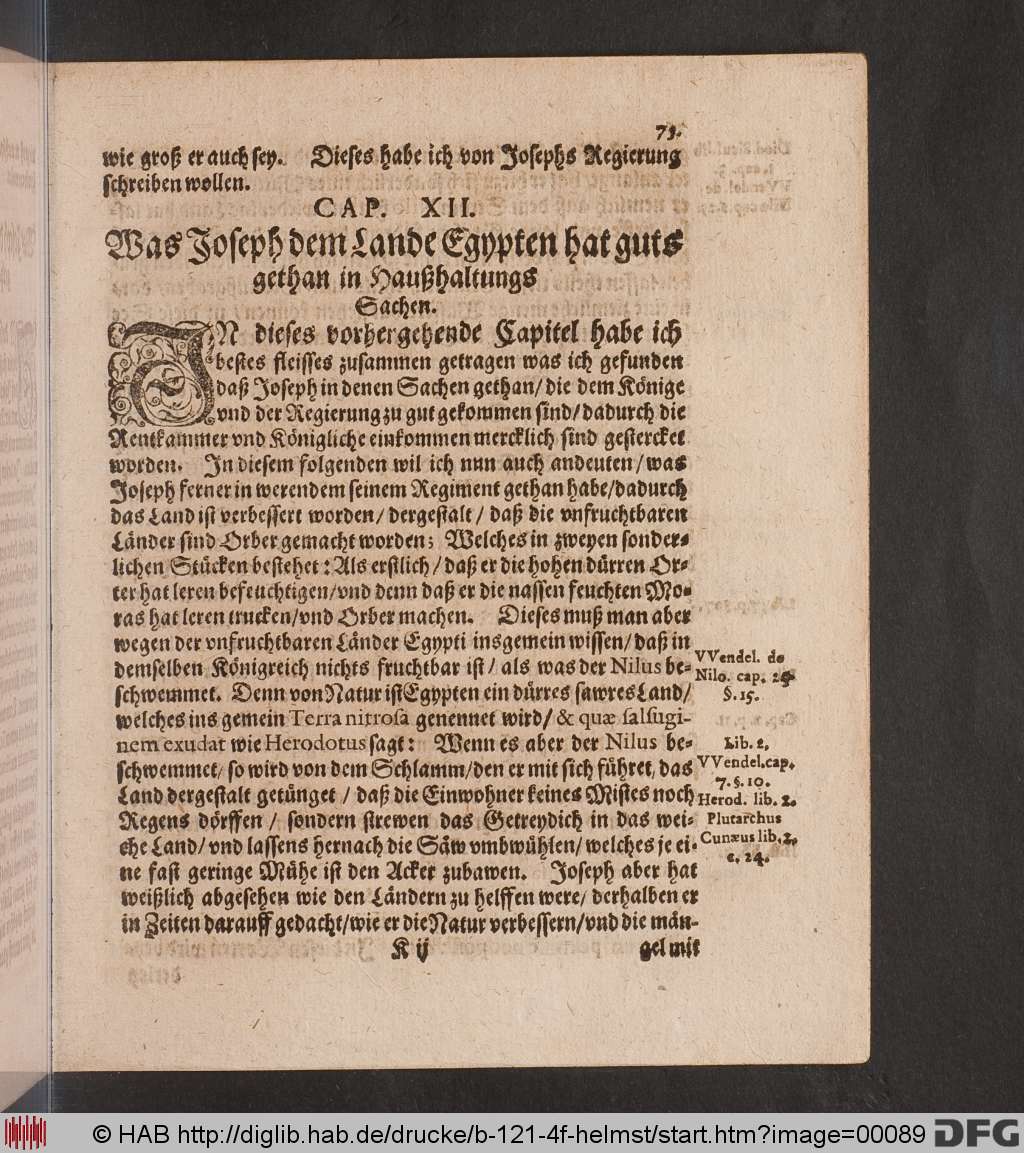 75.
wie groß er auch sey. Dieses habe ich von Josephs Regierung
schreiben wollen.
CAP. XII.
Was Joseph dem Lande Egypten hat guts
gethan in Haußhaltungs
Sachen.
IN dieses vorhergehende Capitel habe ich
bestes fleisses zusammen getragen was ich gefunden
daß Joseph in denen Sachen gethan/ die dem Könige
vnd der Regierung zu gut gekommen sind/ dadurch die
Rentkammer vnd Königliche einkommen mercklich sind gestercket
worden. In diesem folgenden wil ich nun auch andeuten/ was
Joseph ferner in werendem seinem Regiment gethan habe/ dadurch
das Land ist verbessert worden/ dergestalt/ daß die vnfruchtbaren
Länder sind Orber gemacht worden; Welches in zweyen sonder-
lichen Stücken bestehet: Als erstlich/ daß er die hohen dürren Or-
ter hat leren befeuchtigen/ vnd denn daß er die nassen feuchten Mo-
ras hat leren trucken/ vnd Orber machen. Dieses muß man aber
wegen der vnfruchtbaren Länder Egypti insgemein wissen/ daß in
demselben Königreich nichts fruchtbar ist/ als was der Nilus be-
schwemmet. Denn von Natur ist Egypten ein dürres sawres Land/
welches ins gemein Terra nitrosa genennet wird/ & quæ salsugi-
nem exudat wie Herodotus sagt: Wenn es aber der Nilus be-
schwemmet/ so wird von dem Schlamm/ den er mit sich führet, das
Land dergestalt getünget / daß die Einwohner keines Mistes noch
Regens dörffen / sondern strewen das Getreydich in das wei-
che Land/ vnd lassens hernach die Säw vmbwühlen/ welches je ei-
ne fast geringe Mühe ist den Acker zubawen. Joseph aber hat
weißlich abgesehen wie den Ländern zu helffen were/ derhalben er
in Zeiten darauff gedacht/ wie er die Natur verbessern/ vnd die män-
K ij gel mit
VVendel. de
Nilo. cap. 24.
§. 15.
Lib. 2.
VVendel. cap.
7. §. 10.
Herod. lib. 2.
Plutarchus
Cunæus lib. 2.
c. 24.
© HAB http://diglib.hab.de/drucke/b-121-4f-helmst/start.htm?image=00089
DFG